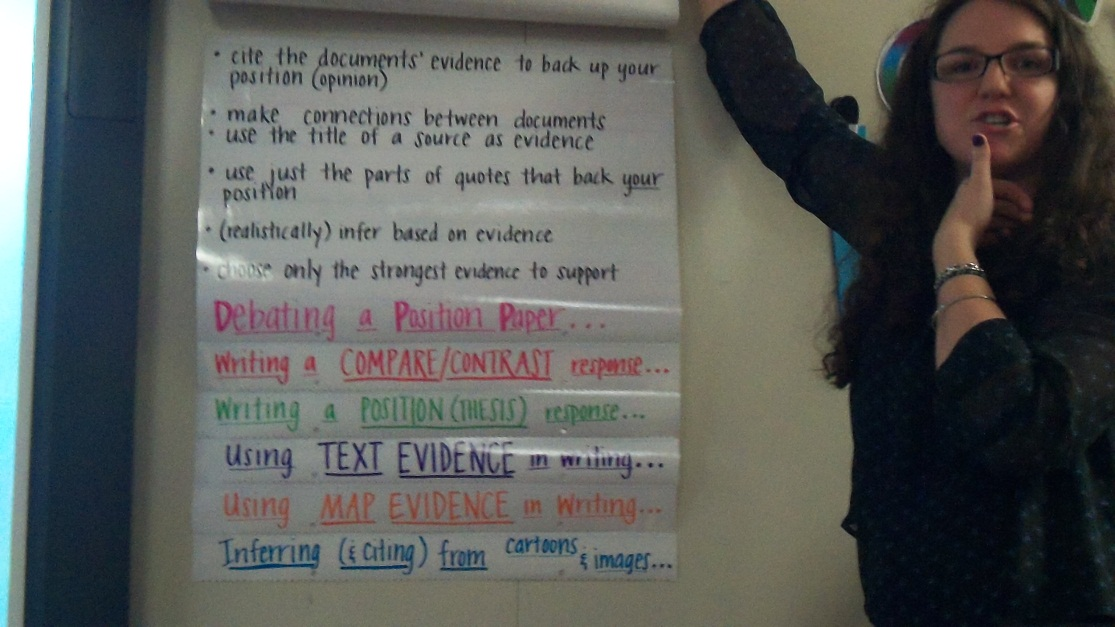 • cite the documents' evidence to back up your
position (opinion)
• make connections between documents
• use the title of a source as evidence
• use just the parts of quotes that back your
position
• (realistically) infer based on evidence
• choose only the strongest evidence to support
Debating a Position Paper...
Writing a COMPARE/CONTRAST response...
Writing a POSITION (THESIS) response...
Using TEXT EVIDENCE in writing...
Using MAP EVIDENCE in Writing...
Inferring (& citing) from cartoons & images...